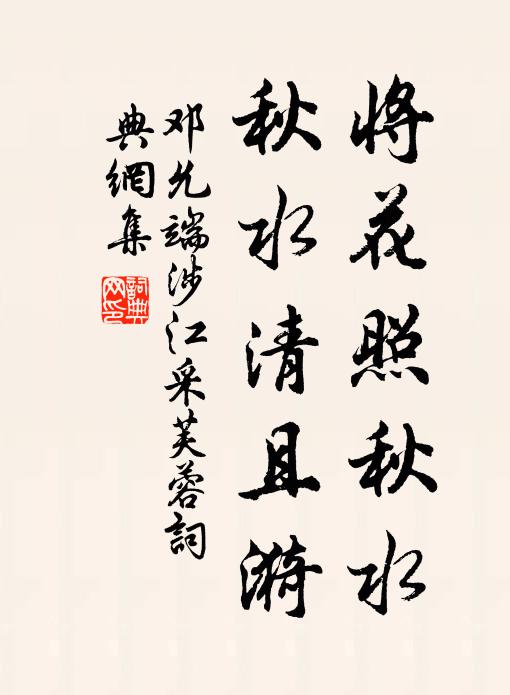 将花照秋水
秋水清且漪
邓允端涉江采芙蓉詞
典網集
詞典网印